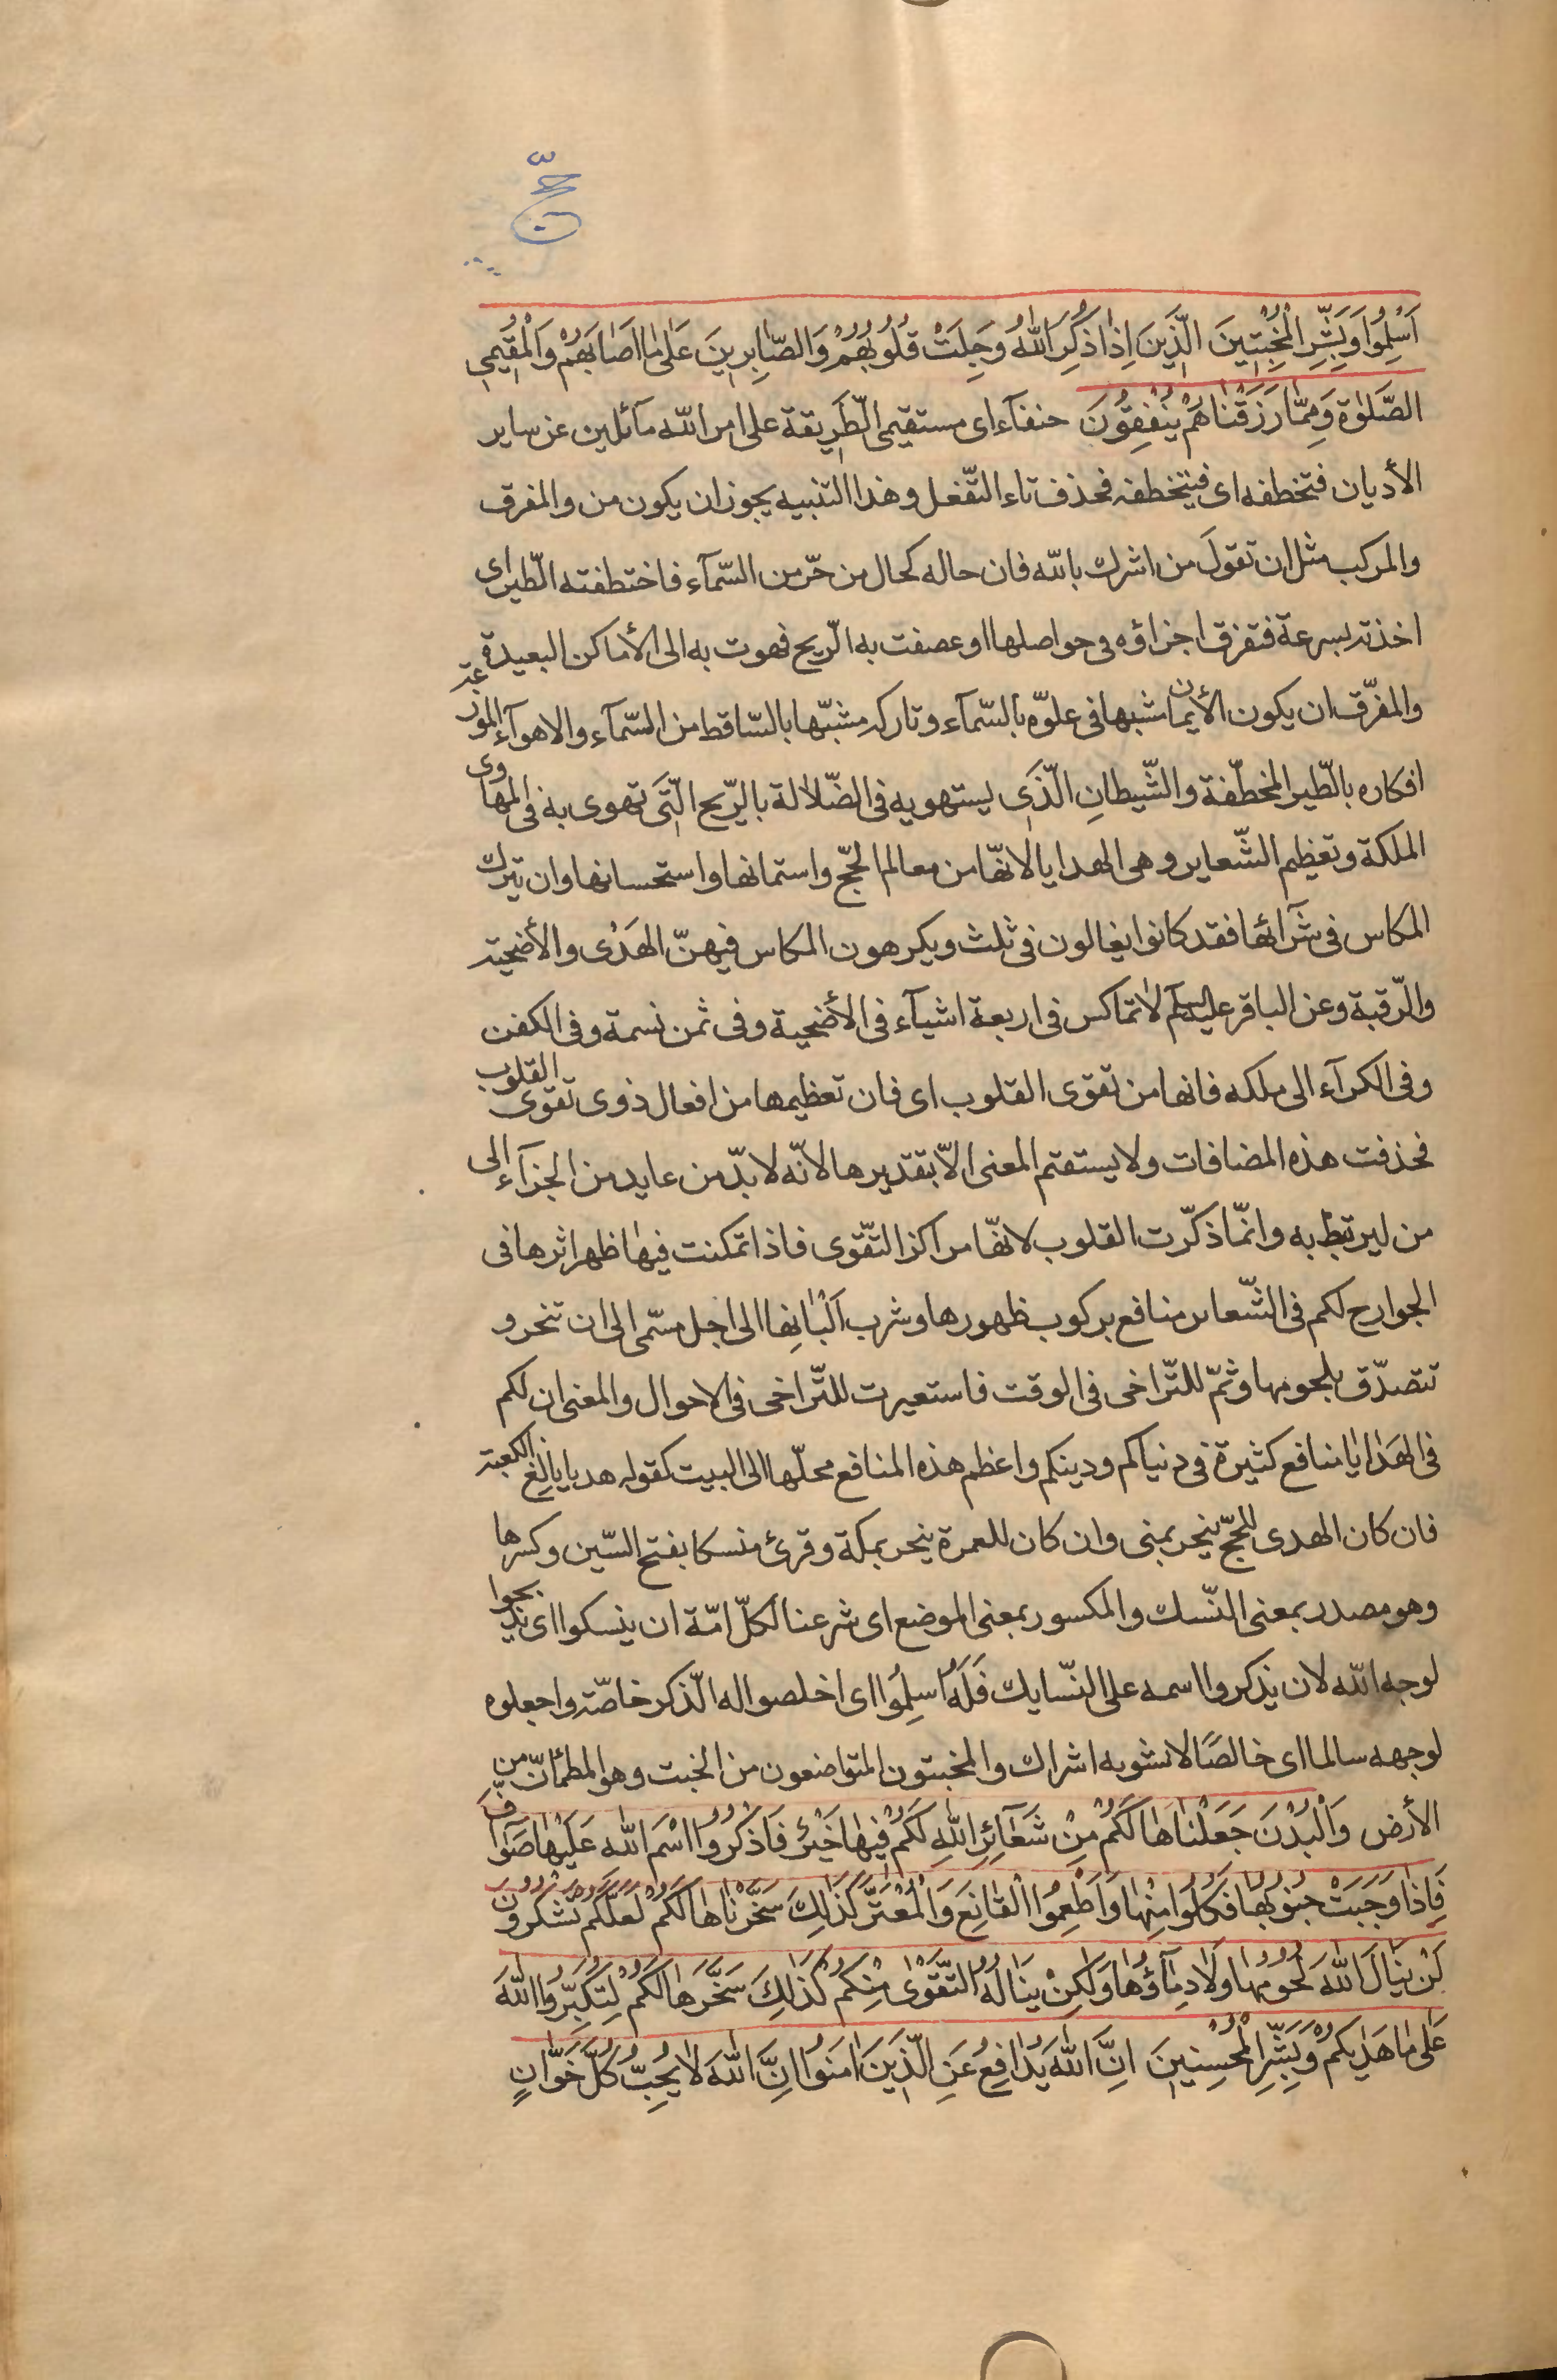 حجّ
اَسْلِمُوا وَبَشِّرِ الْمُخْبِتِينَ الَّذِينَ اِذَا ذُكِرَ اللّٰهُ وَجِلَتْ قُلُوبُهُمْ وَالصَّابِرِينَ عَلٰى مَا اَصَابَهُمْ وَالْمُقِيمِى
الصَّلٰوةِ وَمِمَّا رَزَقْنَاهُمْ يُنْفِقُونَ حنفآء اى مستقيمى الطّريقة على امر اللّه مآئلين عن ساير
الأديان فتخطفه اى فيتخطفه فحذف تاء التّفعل وهذا التنبيه يجوز ان يكون من والمفرق
والمركب مثل ان تقول من اشرك باللّه فان حاله كحال من خرّ من السّمآء فاختطفته الطّير اى
اخذته بسرعة فتفرق اجزاؤه فى حواصلها او عصفت به الرّيح فهوت به الى الأماكن البعيدة
والمفرّق ان يكون الأيمان شبها فى علوّه بالسّمآء وتاركه مشبّها بالسّاقط من السّمآء والاهوآء الموزعة
افكاره بالطّير المخطّفة والشّيطانِ الّذى يستهويه فى الضّلالة بالرّيح الّتى تهوى به فى المهاوى
الملكة وتعظيم الشّعاير وهى الهدايا لانّها من معالم الحجّ واستمانها واستحسانها وان يترك
المكاس فى شرآئها فقد كانوا يغالون فى ثلث ويكرهون المكاس فيهنّ الهَدْى والأضحية
والرّقبة وعن الباقر عليه السلم لا تماكس فى اربعة اشيآء فى الأضحية وفى ثمن نسمة وفى الكفن
وفى الكرآء الى ملكه فانها من تقوى القلوب اى فان تعظيمها من افعال ذوى تقوى القلوب
فحذفت هذه المضافات ولا يستقتم المعنى الّا بتقديرها لانّه لا بدّ من عايد من الجزآء الى
من ليرتبط به وانّما ذكّرت القلوب لانّها مراكز التّقوى فاذا تمكنت فيها ظهر اثرها فى
الجوارح لكم فى الشّعاير منافع بركوب ظهورها وشرب اَلْبَانِها الى اجل مسمّى الى ان تنحر و
تتصدّق بلحومها وثمّ للتّراخى فى الوقت فاستعيرت للتّراخى فى الاحوال والمعنى ان لكم
فى الهَدَايَا منافع كثيرة فى دنياكم ودينكم واعظم هذه المنافع محلّها الى البيت كقوله هديا بالِغ الكعبة
فان كان الهدى للحجّ ينحر بمنى وان كان للعمرة ينحر بمكة وقرئ منسكا بفتح السّين وكسرها
وهو مصدر بمعنى النّسك والمكسور بمعنى الموضع اى شرعنا لكلّ امّة ان ينسكوا اى يذبحوا
لوجه اللّه لان يذكروا اسمه على النّسايك فَلَهُ اَسلِمُوا اى اخلصوا له الذّكر خاصّة واجعلوه
لوجهه سالما اى خالصًا لا نشوبه اشراك والمخبتون المتواضعون من الخبت وهو المطمئنّ من
الأرض وَالْبُدْنَ جَعَلْنَاهَا لَكُمْ مِنْ شَعَآئِرِ اللّٰهِ لَكُمْ فِيهَا خَيْرٌ فَاذْكُرُوا اسْمَ اللّٰهِ عَلَيْهَا صَوَآفَّ
فَاِذَا وَجَبَتْ جُنُوبُهَا فَكُلُوا مِنْهَا وَاَطْعِمُوا الْقَانِعَ وَالْمُعْتَرَّ كَذٰلِكَ سَخَّرْنَاهَا لَكُمْ لَعَلَّكُمْ تَشْكُرُونَ
لَنْ يَنَالَ اللّٰهَ لُحُومُهَا وَلَا دِمَآؤُهَا وَلٰكِنْ يَنَالُهُ التَّقْوٰى مِنْكُمْ كَذٰلِكَ سَخَّرَهَا لَكُمْ لِتُكَبِّرُوا اللّٰهَ
عَلٰى مَا هَدٰيكُمْ وَبَشِّرِ الْمُحْسِنِينَ اِنَّ اللّٰهَ يُدَافِعُ عَنِ الَّذِينَ اٰمَنُوا اِنَّ اللّٰهَ لَا يُحِبُّ كُلَّ خَوَّانٍ